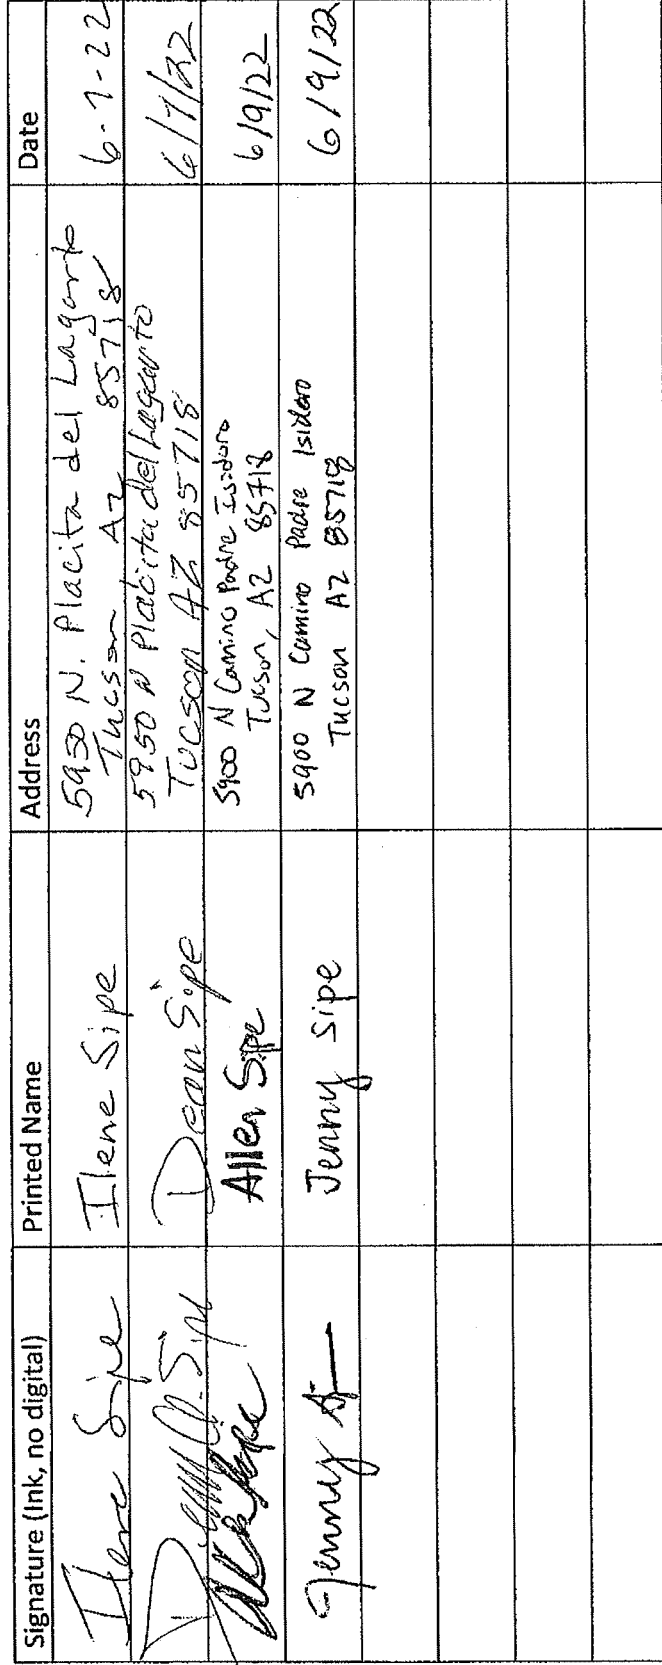 Signature (Ink, no digital) Printed Name Address Date
Ilene Sipe Ilene Sipe 5950 N. Placita del Lagarto 6-7-22
Tucson Az 85718
Sipe Dean Sipe 5950 N Placita del Lagarto 6/7/22
Tucson AZ 85718
Allen Sipe 5900 N Camino Padre Isidoro 6/9/22
Tucson, AZ 85718
Jenny Jenny Sipe 5900 N Camino Padre Isidoro 6/9/22
Tucson AZ 85718